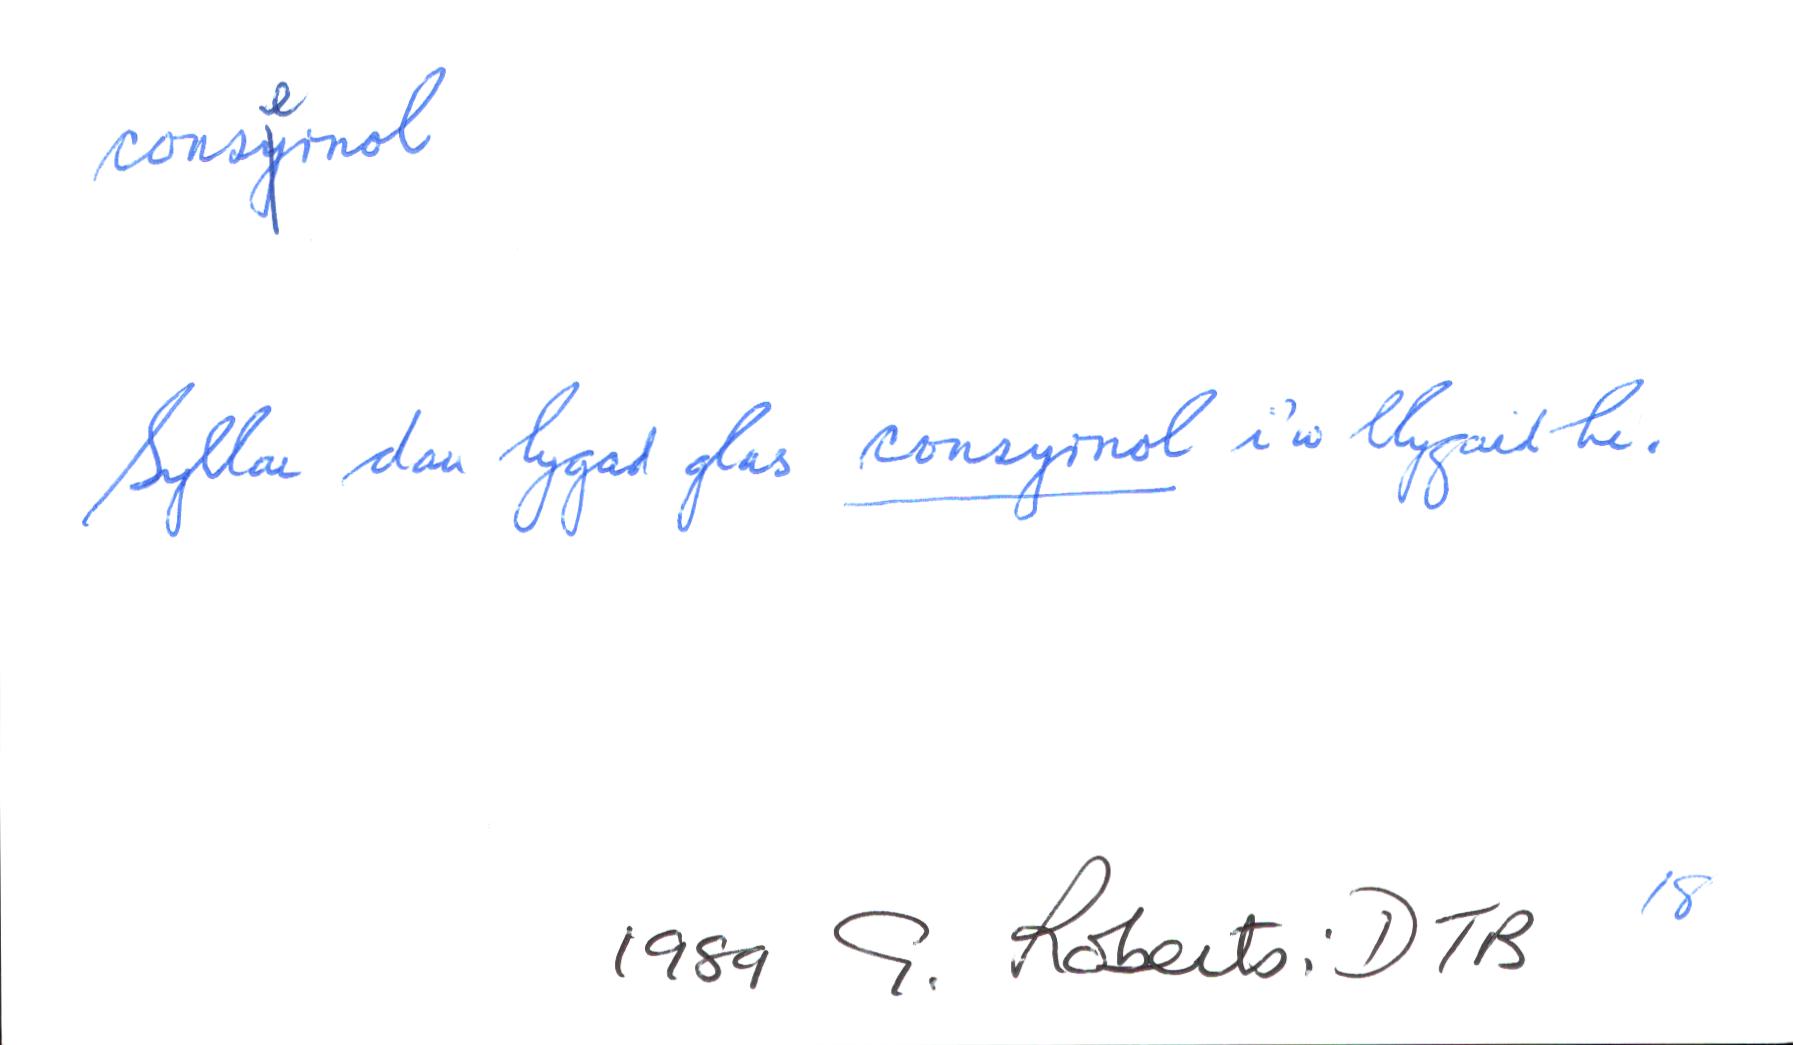 consernol
Syllai dau lygad glas consyrnol i'w llygaid hi.
1989 G. Roberts: DTB 18